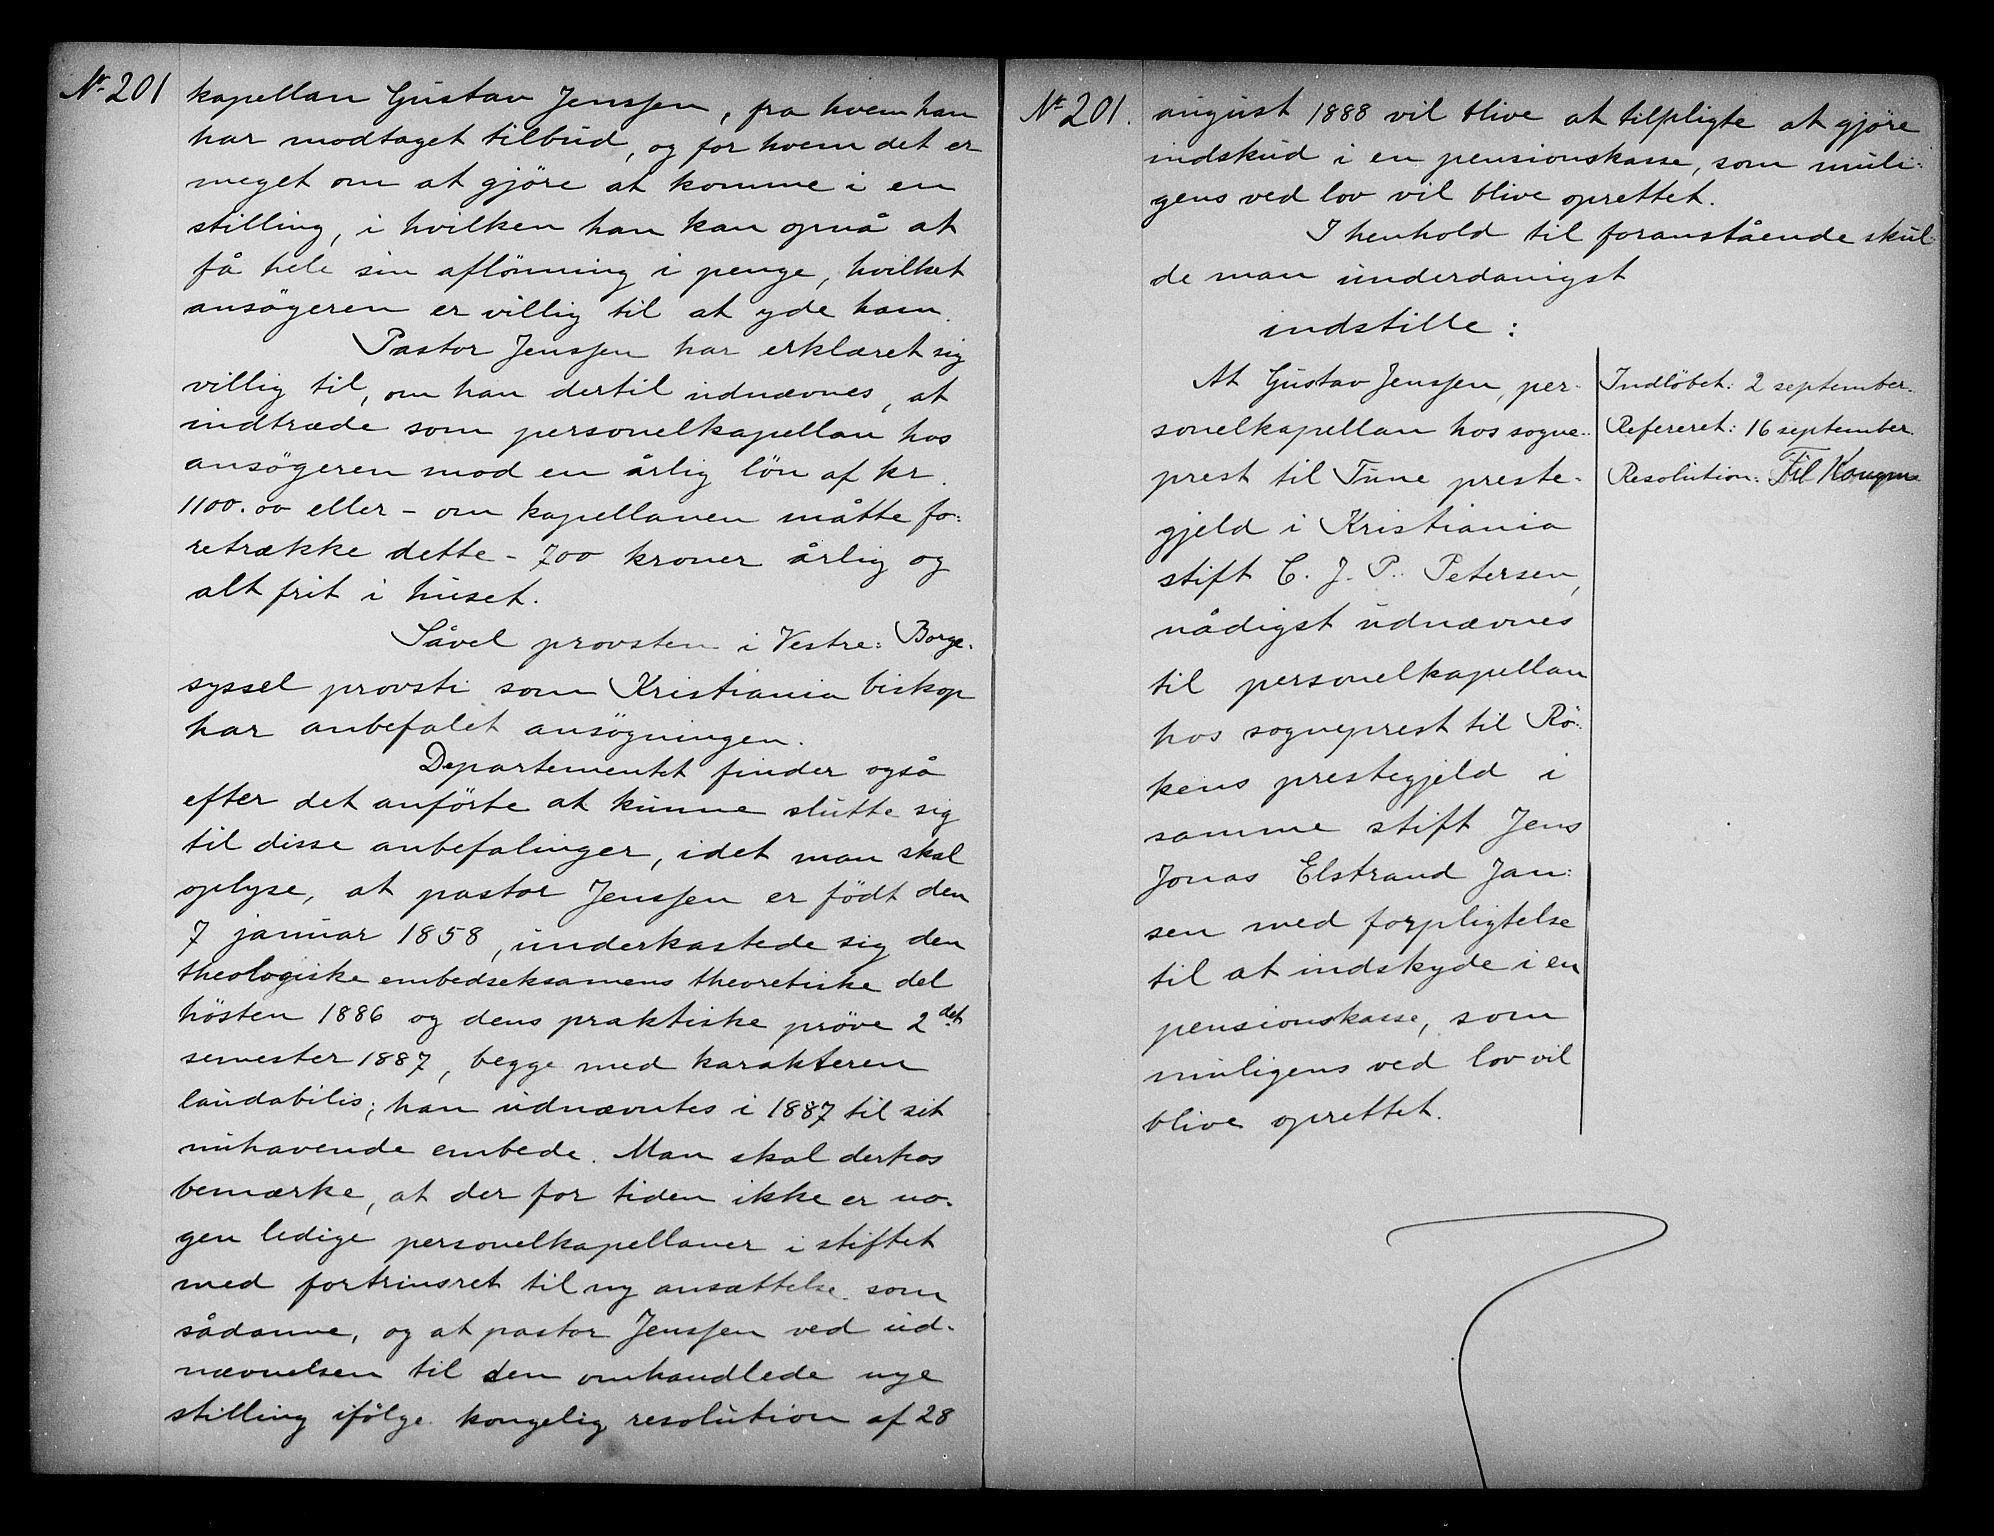 Nr. 201
kapellan Gustav Jenssen, fra hvem han
har modtaget tilbud, og for hvem det er
meget om at gjöre at komme i en
stilling, i hvilken han kan opnå at
få hele sin aflönning i penge, hvilket
ansögeren er villig til at yde ham.
Pastor Jenssen har erklæret sig
villig til, om han dertil udnævnes, at
indtræde som personelkapellan hos
ansögeren mod en årlig lön af kr.
1100.00 eller - om kapellanen måtte fo:
retrække dette - 700 kroner årlig og
alt frit i huset.
Såvel provsten i Vestre: Borge.
syssel provsti som Kristiania biskop
har anbefalet ansögningen.
Departementet finder også
efter det anförte at kunne slutte sig
til disse anbefalinger, idet man skal
oplyse, at pastor Jenssen er födt den
7 januar 1858, underkastede sig den
theologiske embedseksamens theoretiske del
hösten 1886 og dens praktiske pröve 2det
semester 1887, begge med karakteren
laudabilis; han udnævntes i 1887 til sit
nuhavende embede. Man skal derhos
bemærke, at der for tiden ikke er no-
gen ledige personelkapellaner i stiftet
med fortrinsret til ny ansættelse som
sådanne, og at pastor Jenssen ved ud-
nævnelsen til den omhandlede nye
stilling ifölge kongelig resolution af 28
Nr. 201.
august 1888 vil blive at tilpligte at gjöre
indskud i en pensionskasse, som muli-
gens ved lov vil blive oprettet.
I henhold til foranstående skul-
de man underdanigst
indstille:
At Gustav Jenssen, per-
sonelkapellan hos sogne-
prest til Tune preste-
gjeld i Kristiania
stift C. J. P. Petersen,
nådigst udnævnes
til personelkapellan
hos sogneprest til Rö-
kens prestegjeld i
samme stift Jens
Jonas Elstrand Jan:
sen med forpligtelse
til at indskyde i en
pensionskasse, som
muligens ved lov vil
blive oprettet.
Indlöbet: 2 september.
Refereret: 16 september.
Resolution: Til Kongen